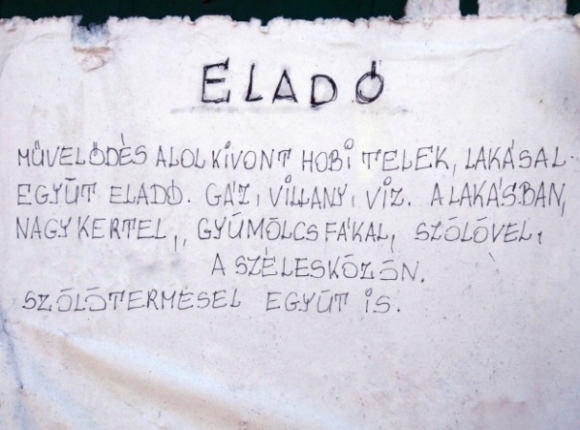 ELADÓ
MŰVELŐDÉS ALOL KIVONT HOBI TELEK, LAKÁSAL
EGYŰT ELADÓ. GÁZ, VILLANY, VIZ. A LAKÁSBAN,
NAGY KERTEL,, GYŰMÖLCSFÁKAL, SZŐLŐVEL,
A SZÉLESKÖZÖN.
SZŐLŐTERMÉSEL EGYŰT IS.